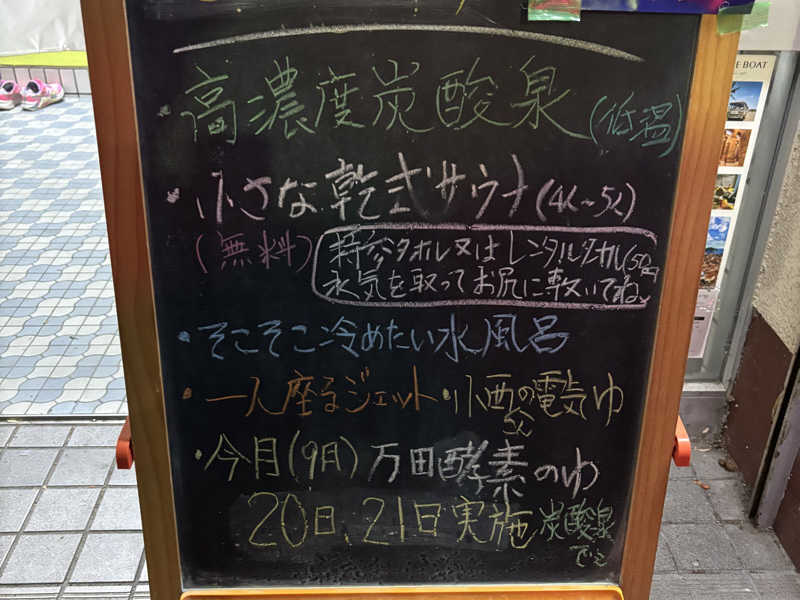 高濃度炭酸泉(低温)
・小さな乾式サウナ(4人~5人)
(無料)
持参タオル又はレンタルタオル(50円)
水気を取ってお尻に敷いてね。
・そこそこ冷めたい水風呂
・一人座るジェット・小西さんの電気ゆ
・今月(9日)万田酵素のゆ
20日、21日実施炭酸泉
E BOAT